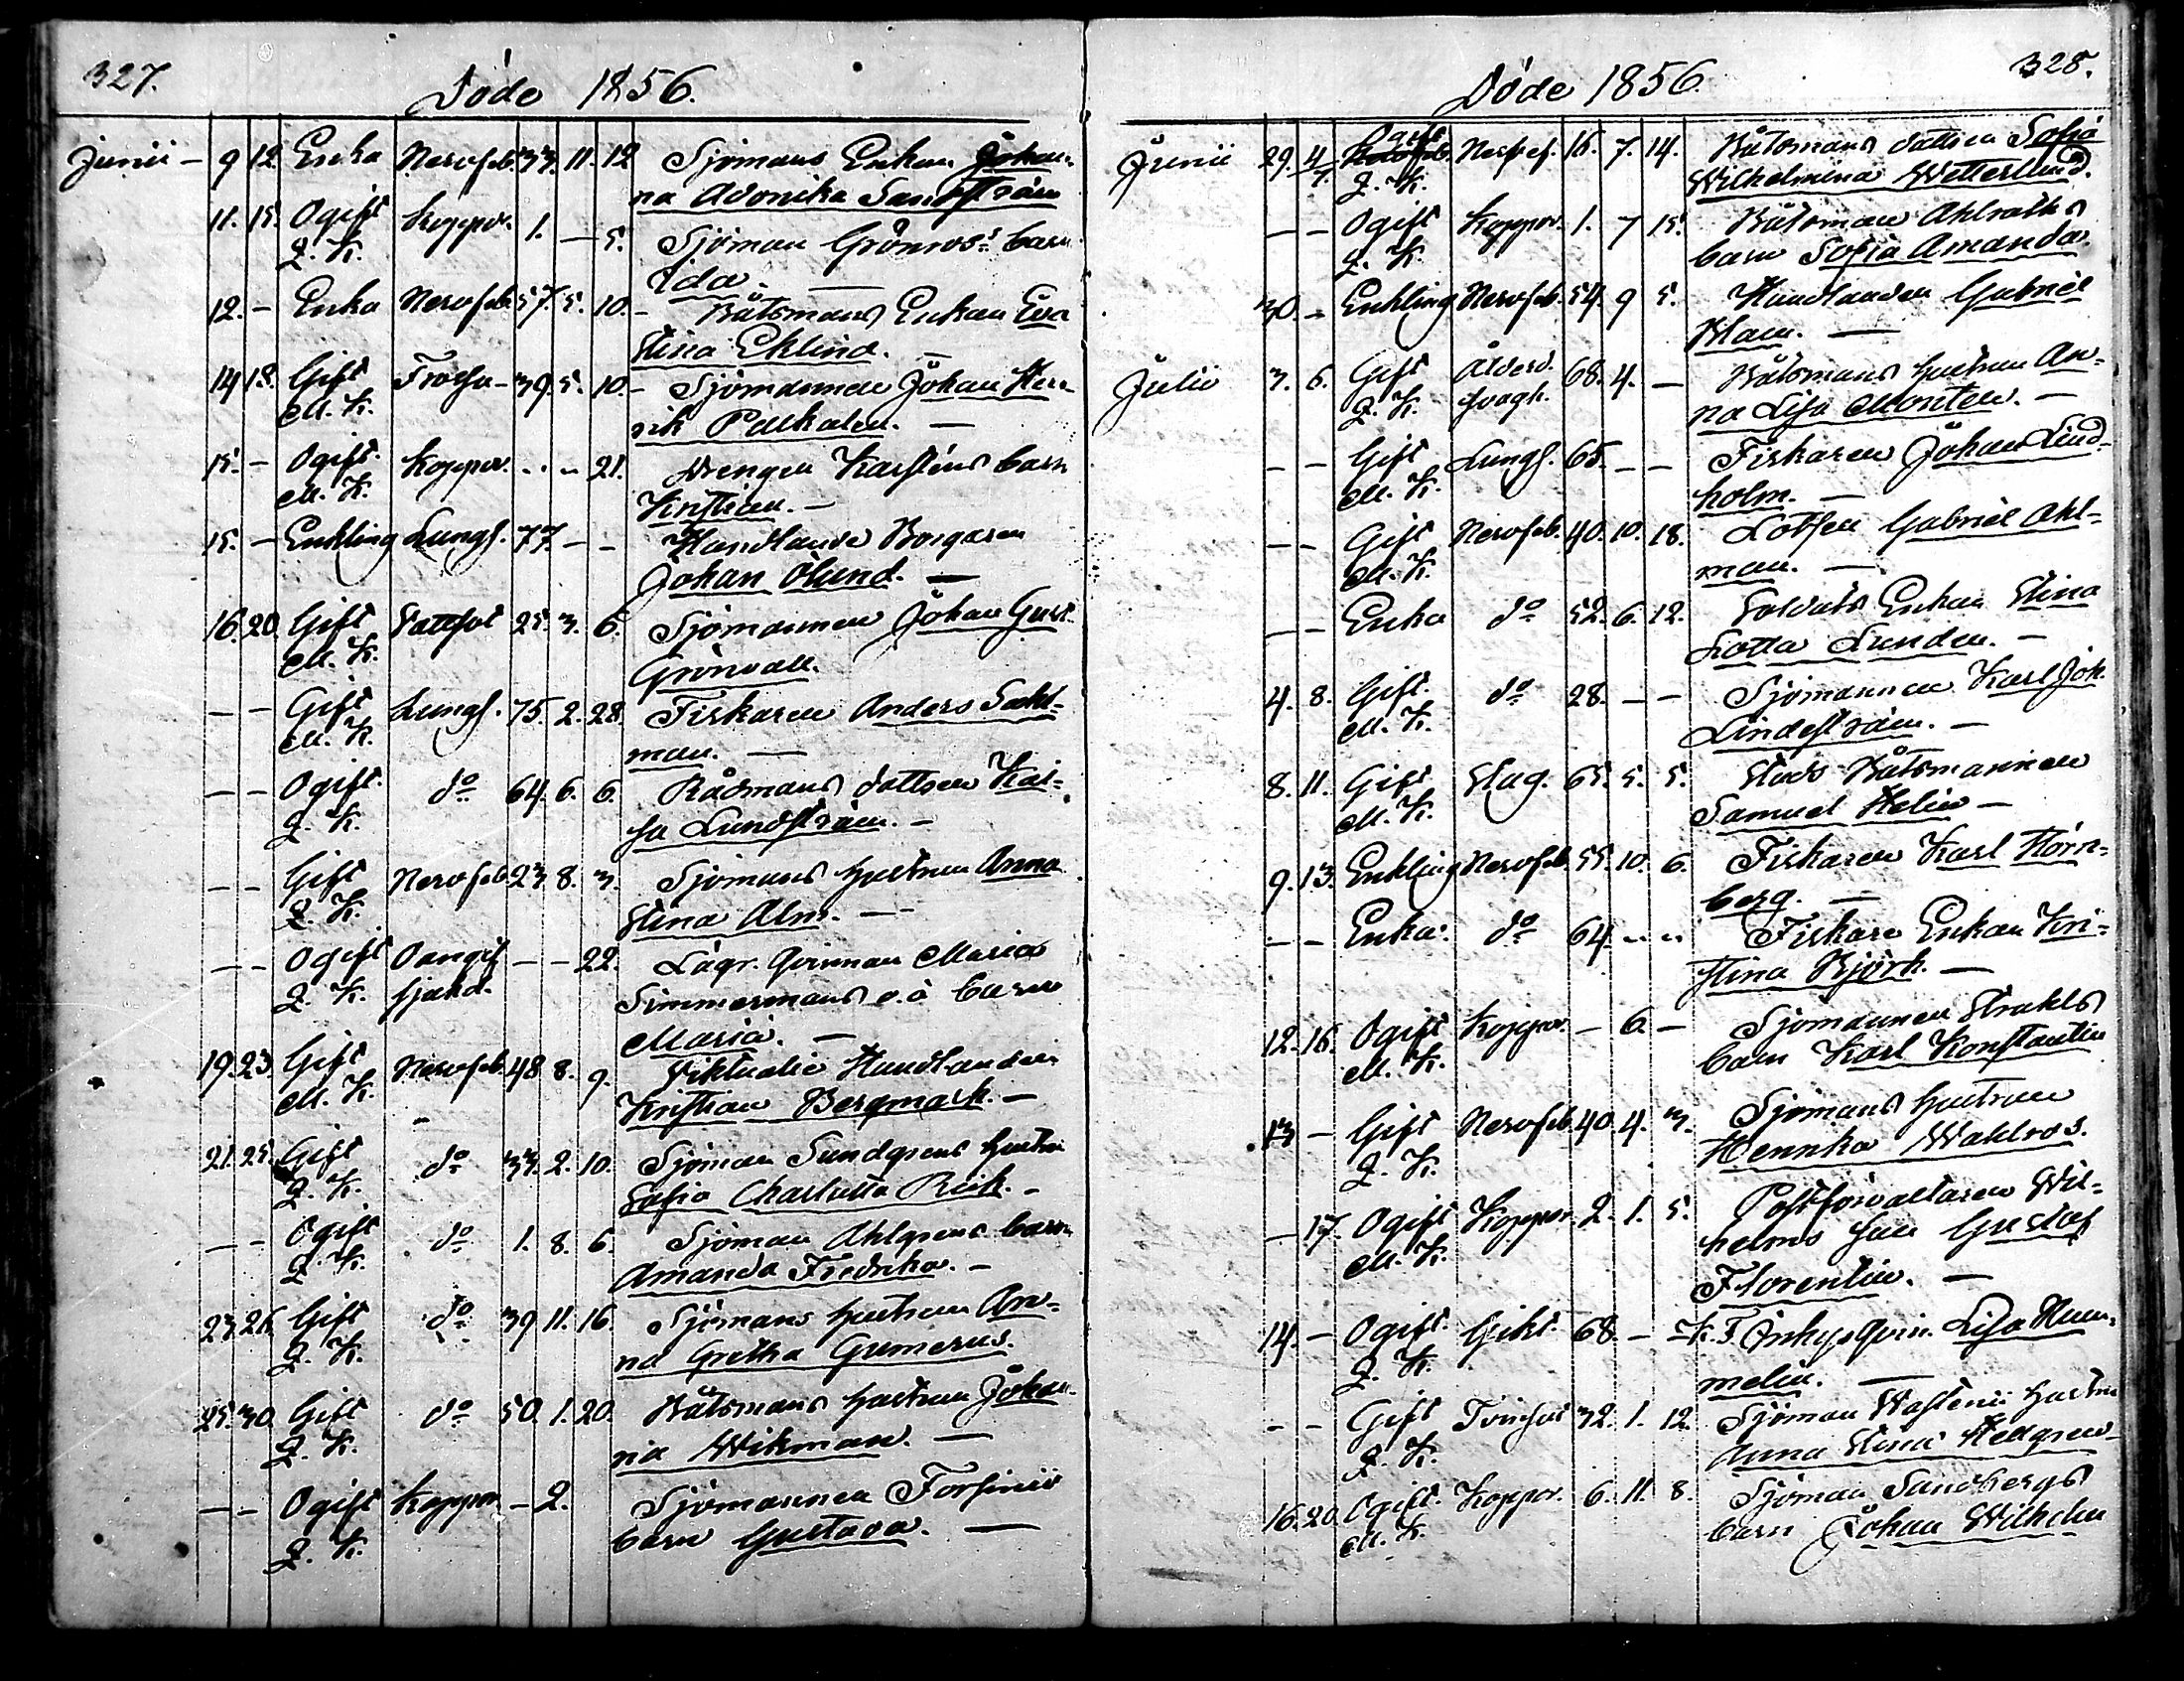 327.
Döde 1856.
Junii - 9 12 Enka Nervfeb. 33. 11. 12 Sjömans Enkan Johan-
na Adonika Sandström
11. 15. Ogift Koppor. 1. — 5. Sjöman Grönros's barn
Q. K. Ida. —
12. - Enka Nervfeb. 57. 5. 10. - Båtsmans Enkan Eva
Stina Eklind. —
14 18. Gift 39. 5. 10. - Sjömannen Johan Hen-
M. K. rik Palkalen. —
15. - Ogift Koppor. - - 21. Drengen Karsténs barn
M. K. Kristian. —
15. - Enkling Lungs. 77. - - Handlande Borgaren
Johan Ölund. —
16. 20 Gift 25. 3. 6. Sjömannen Johan Gust.
M. K. Grönvall.
— — Gift Lungs. 75. 2. 28. Fiskaren Anders Sahl-
M. K. man. —
— — Ogift do 64. 6. 6. Rådmans dottren Kai-
Q. K. sa Lundström. —
— — Gift Nervfeb. 23 8. 3. Sjömans hustrun Anna
Q. K. Stina Alm. —
— — Ogift Oangif — — 22. Lägr. Qvinnan Maria
Q. K. sjukd. Simmermans o. ä barn
Maria. —
19. 23. Gift Nervfeb. 48 8. 9. Viktualie Handlanden
M. K. Kristian Bergmark. —
21. 25. Gift do 33. 2. 10. Sjöman Sundgrens hustru
Q. K. Sofia Charlotta —
— — Ogift do 1. 8. 6. Sjöman Ahlgrens barn
Q. K. Amanda Fredrika. —
23. 26. Gift do 39 11. 16. Sjömans hustrun An-
Q. K. na Gretha Gumerus.
25. 30. Gift do 50. 1. 20. Båtsmans hustrun Johan-
Q. K. na Wikman. —
— — Ogift Koppor — 2. Sjömannen Forsinii
Q. K. barn Gustava. —
328.
Döde 1856
Junii 29. 4/7. Ogift Nervfeb. 16. 7. 14. Båtsmans dottren Sofia
Q. K. Wilhelmina Wetterlund.
— — Ogift Koppor. 1. 7 15. Båtsman Ahlroths
Q. K. barn Sofia Amanda.
30. - Enkling Nervfeb. 54. 9 5. Handlanden Gabriel
Blom. —
Julii 3. 6. Gift Ålderd. 68. 4. — Båtsmans hustrun An-
Q. K. svagh. na Lisa Montell. —
— — Gift Lungs. 65. — — Fiskaren Johan Lind-
M. K. holm. —
— — Gift Nervfeb. 40. 10. 18. Lotsen Gabriel Ahl-
M. K. man. —
— — Enka do 52. 6. 12. Soldats Enkan Stina
Lotta Lunden. —
4. 8. Gift do 28. — — Sjömannen Karl Joh.
M. K. Lindström. —
8. 11. Gift Slag. 65. 5. 5. Stads Båtsmannen
M. K. Samuel Helin —
9. 13. Enkling Nervfeb. 55. 10. 6. Fiskaren Karl Hörn-
berg. —
— — Enka. do 64 — — Fiskare Enkan Kri-
stina Björk. —
12. 16. Ogift Koppor. — 6. — Sjömannen Strahls
M. K. barn Karl Konstantin
13 — Gift Nervfeb. 40. 4. 3. Sjömans hustrun
Q. K. Henrika Wahlros.
— 17. Ogift Koppor. 2. 1. 5. Postförvaltaren Wil-
M. K. helms son Gustaf
Florentin. —
14. — Ogift Gikt. 68. — Lisa Hum-
Q. K. melin. —
— — Gift Tvinsot 32. 1. 12. Sjöman Wastenii hustru
Q. K. Anna Stina Hedgren
16. 20. Ogift Koppor. 6. 11. 8. Sjöman Sandbergs
M. K. barn Johan Wilhelm